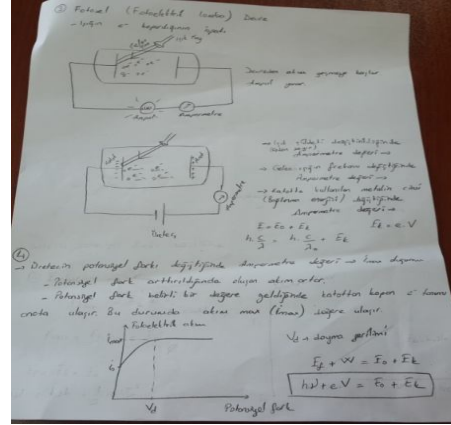 ③ Fotosel (Fotoelektrik Lamba) Devre
- Işığın e⁻ kopardığının ispatı
Devreden akım geçmeye başlar
lamba yanar.
Ampermetre
→ Işık şiddeti değiştirildiğinde
Ampermetre değeri →
→ Gelen ışığın frekansı değiştiğinde
Ampermetre değeri →
→ Katotta kullanılan metalin cinsi
(bağlanma enerjisi) değiştiğinde
Ampermetre değeri →
Ampermetre
Üreteç
E = E₀ + Ek
Ek = e.V
h. c/λ = h. c/λ₀ + Ek
→ Üretecin potansiyel farkı değiştiğinde Ampermetre değeri →
- Potansiyel fark arttırıldığında oluşan akım artar.
- Potansiyel fark belirli bir değere geldiğinde katottan kopan e⁻
anota ulaşır. Bu durumda akım max (Imax) değere ulaşır.
Fotoelektrik akım
Imax
I₀
Vd
Potansiyel fark
Vd → doyma gerilimi
Ef + W = E₀ + Ek
hν + e.V = E₀ + Ek